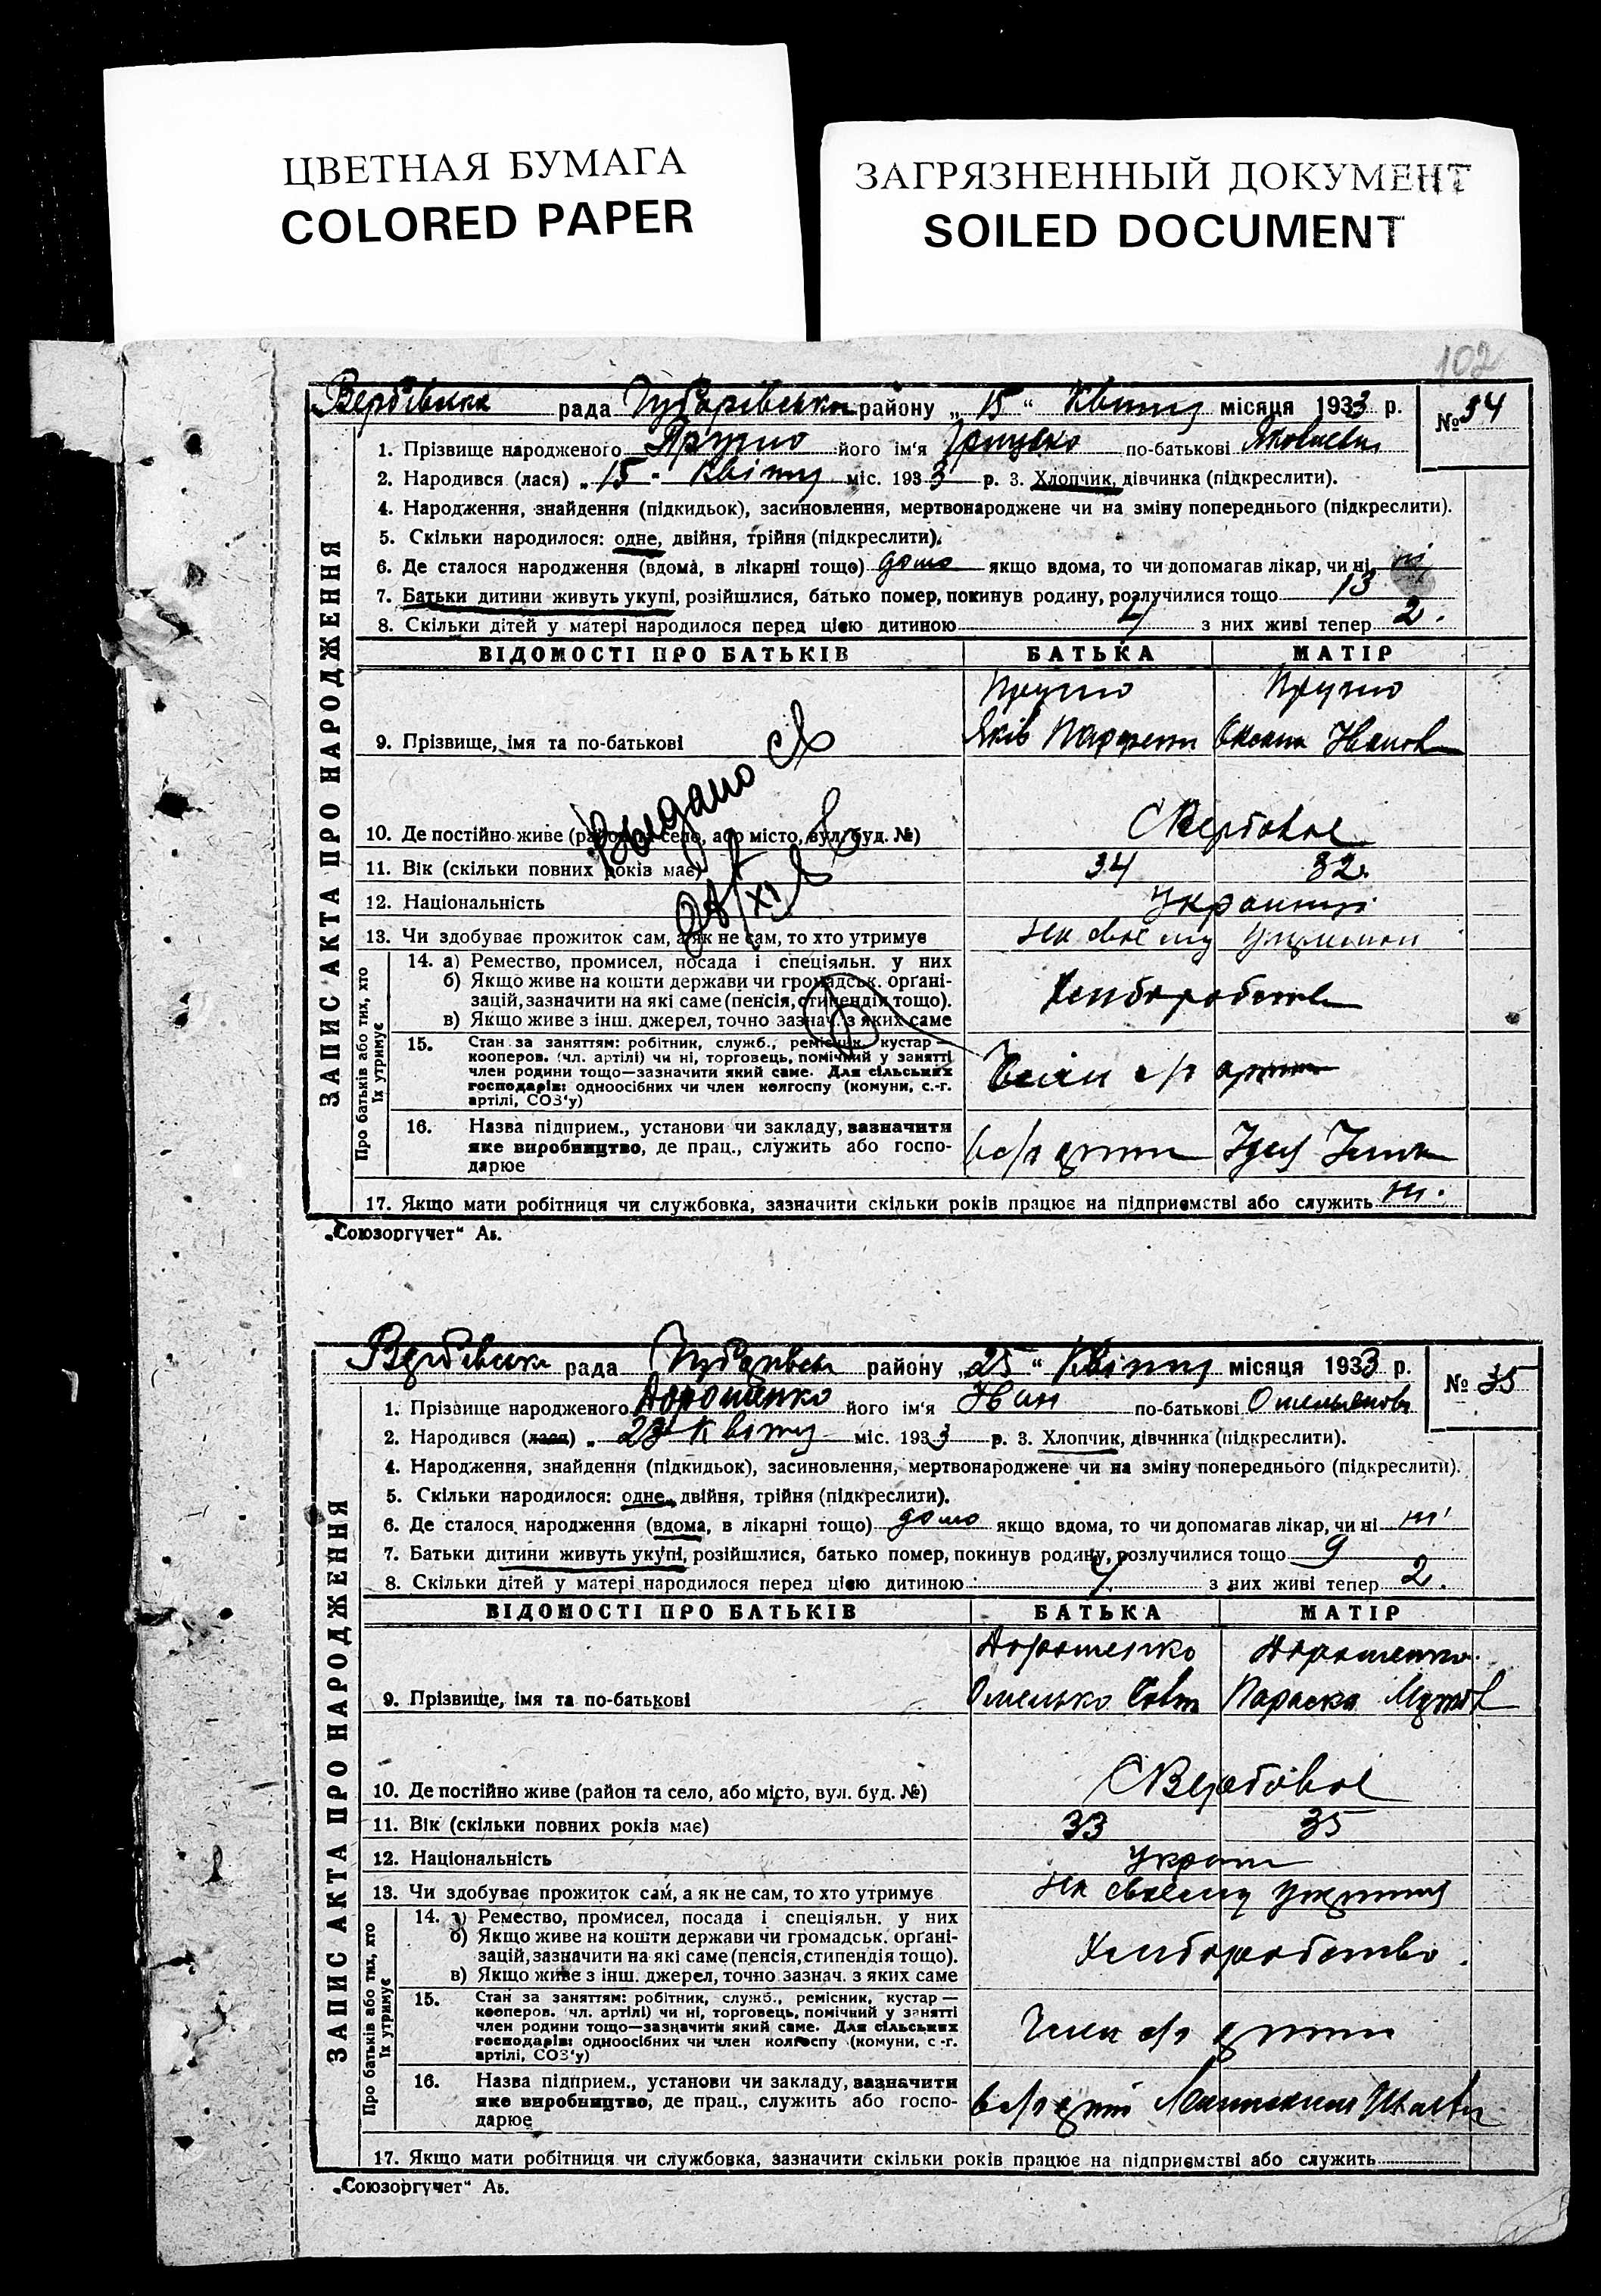 ЦВЕТНАЯ БУМАГА
COLORED PAPER
ЗАГРЯЗНЕННЫЙ ДОКУМЕНТ
SOILED DOCUMENT
102
Вербівська рада району „15“ Квітня місяця 1933 р. № 34
1. Прізвище народженого його ім'я Грицько по-батькові
2. Народився (лася) „15“ Квітня міс. 1933 р. 3. Хлопчик, дівчинка (підкреслити).
4. Народження, знайдення (підкидьок), засиновлення, мертвонароджене чи на зміну попереднього (підкреслити).
5. Скільки народилося: одне, двійня, трійня (підкреслити).
6. Де сталося народження (вдома, в лікарні тощо) дома якщо вдома, то чи допомагав лікар, чи ні ні
7. Батьки дитини живуть укупі, розійшлися, батько помер, покинув родину, розлучилися тощо 13
8. Скільки дітей у матері народилося перед цією дитиною 4 з них живі тепер 2.
ЗАПИС АКТА ПРО НАРОДЖЕННЯ
ВІДОМОСТІ ПРО БАТЬКІВ БАТЬКА МАТІР
9. Прізвище, імя та по-батькові Яків Оксана Иванов
Видано
10. Де постійно живе (район та село, або місто, вул. буд. №) С Вербовое
11. Вік (скільки повних років має) 34 32.
12. Національність Украинці
13. Чи здобуває прожиток сам, а як не сам, то хто утримує на своєму
Про батьків або тих, хто їх утримує
14. а) Ремество, промисел, посада і спеціяльн. у них
б) Якщо живе на кошти держави чи громадськ. орґані-
зацій, зазначити на які саме (пенсія, стипендія тощо).
в) Якщо живе з інш. джерел, точно зазнач. з яких саме
15. Стан за заняттям: робітник, служб., ремісник, кустар —
кооперов. (чл. артілі) чи ні, торговець, помічний у занятті
член родини тощо—зазначити який саме. Для сільських
господарів: одноосібних чи член колгоспу (комуни, с.-г.
артілі, СОЗ'у)
Член с/г
16. Назва підприєм., установи чи закладу, вазначити
яке виробництво, де прац., служить або госпо-
дарює
17. Якщо мати робітниця чи службовка, зазначити скільки років працює на підприємстві або служить ні.
„Союзоргучет“ Аб.
Вербівська рада району „25“ Квітня місяця 1933 р. № 35
1. Прізвище народженого Дорошенко його ім'я Иван по-батькові Омельянов
2. Народився (лася) „23“ Квітня міс. 1933 р. 3. Хлопчик, дівчинка (підкреслити).
4. Народження, знайдення (підкидьок), засиновлення, мертвонароджене чи на зміну попереднього (підкреслити).
5. Скільки народилося: одне, двійня, трійня (підкреслити).
6. Де сталося народження (вдома, в лікарні тощо) дома якщо вдома, то чи допомагав лікар, чи ні ні
7. Батьки дитини живуть укупі, розійшлися, батько помер, покинув родину, розлучилися тощо 9
8. Скільки дітей у матері народилося перед цією дитиною 4 з них живі тепер 2.
ЗАПИС АКТА ПРО НАРОДЖЕННЯ
ВІДОМОСТІ ПРО БАТЬКІВ БАТЬКА МАТІР
Дорошенко Дорошенко
9. Прізвище, імя та по-батькові Омелько Параска
10. Де постійно живе (район та село, або місто, вул. буд. №) С Вербовое
11. Вік (скільки повних років має) 33 35
12. Національність
13. Чи здобуває прожиток сам, а як не сам, то хто утримує на своєму
Про батьків або тих, хто їх утримує
14. а) Ремество, промисел, посада і спеціяльн. у них
б) Якщо живе на кошти держави чи громадськ. орґані-
зацій, зазначити на які саме (пенсія, стипендія тощо).
в) Якщо живе з інш. джерел, точно зазнач. з яких саме
Хлиборобство.
15. Стан за заняттям: робітник, служб., ремісник, кустар —
кооперов. (чл. артілі) чи ні, торговець, помічний у занятті
член родини тощо—зазначити який саме. Для сільських
господарів: одноосібних чи член колгоспу (комуни, с.-г.
артілі, СОЗ'у)
Член с/г
16. Назва підприєм., установи чи закладу, вазначити
яке виробництво, де прац., служить або госпо-
дарює
17. Якщо мати робітниця чи службовка, зазначити скільки років працює на підприємстві або служить
„Союзоргучет“ Аб.